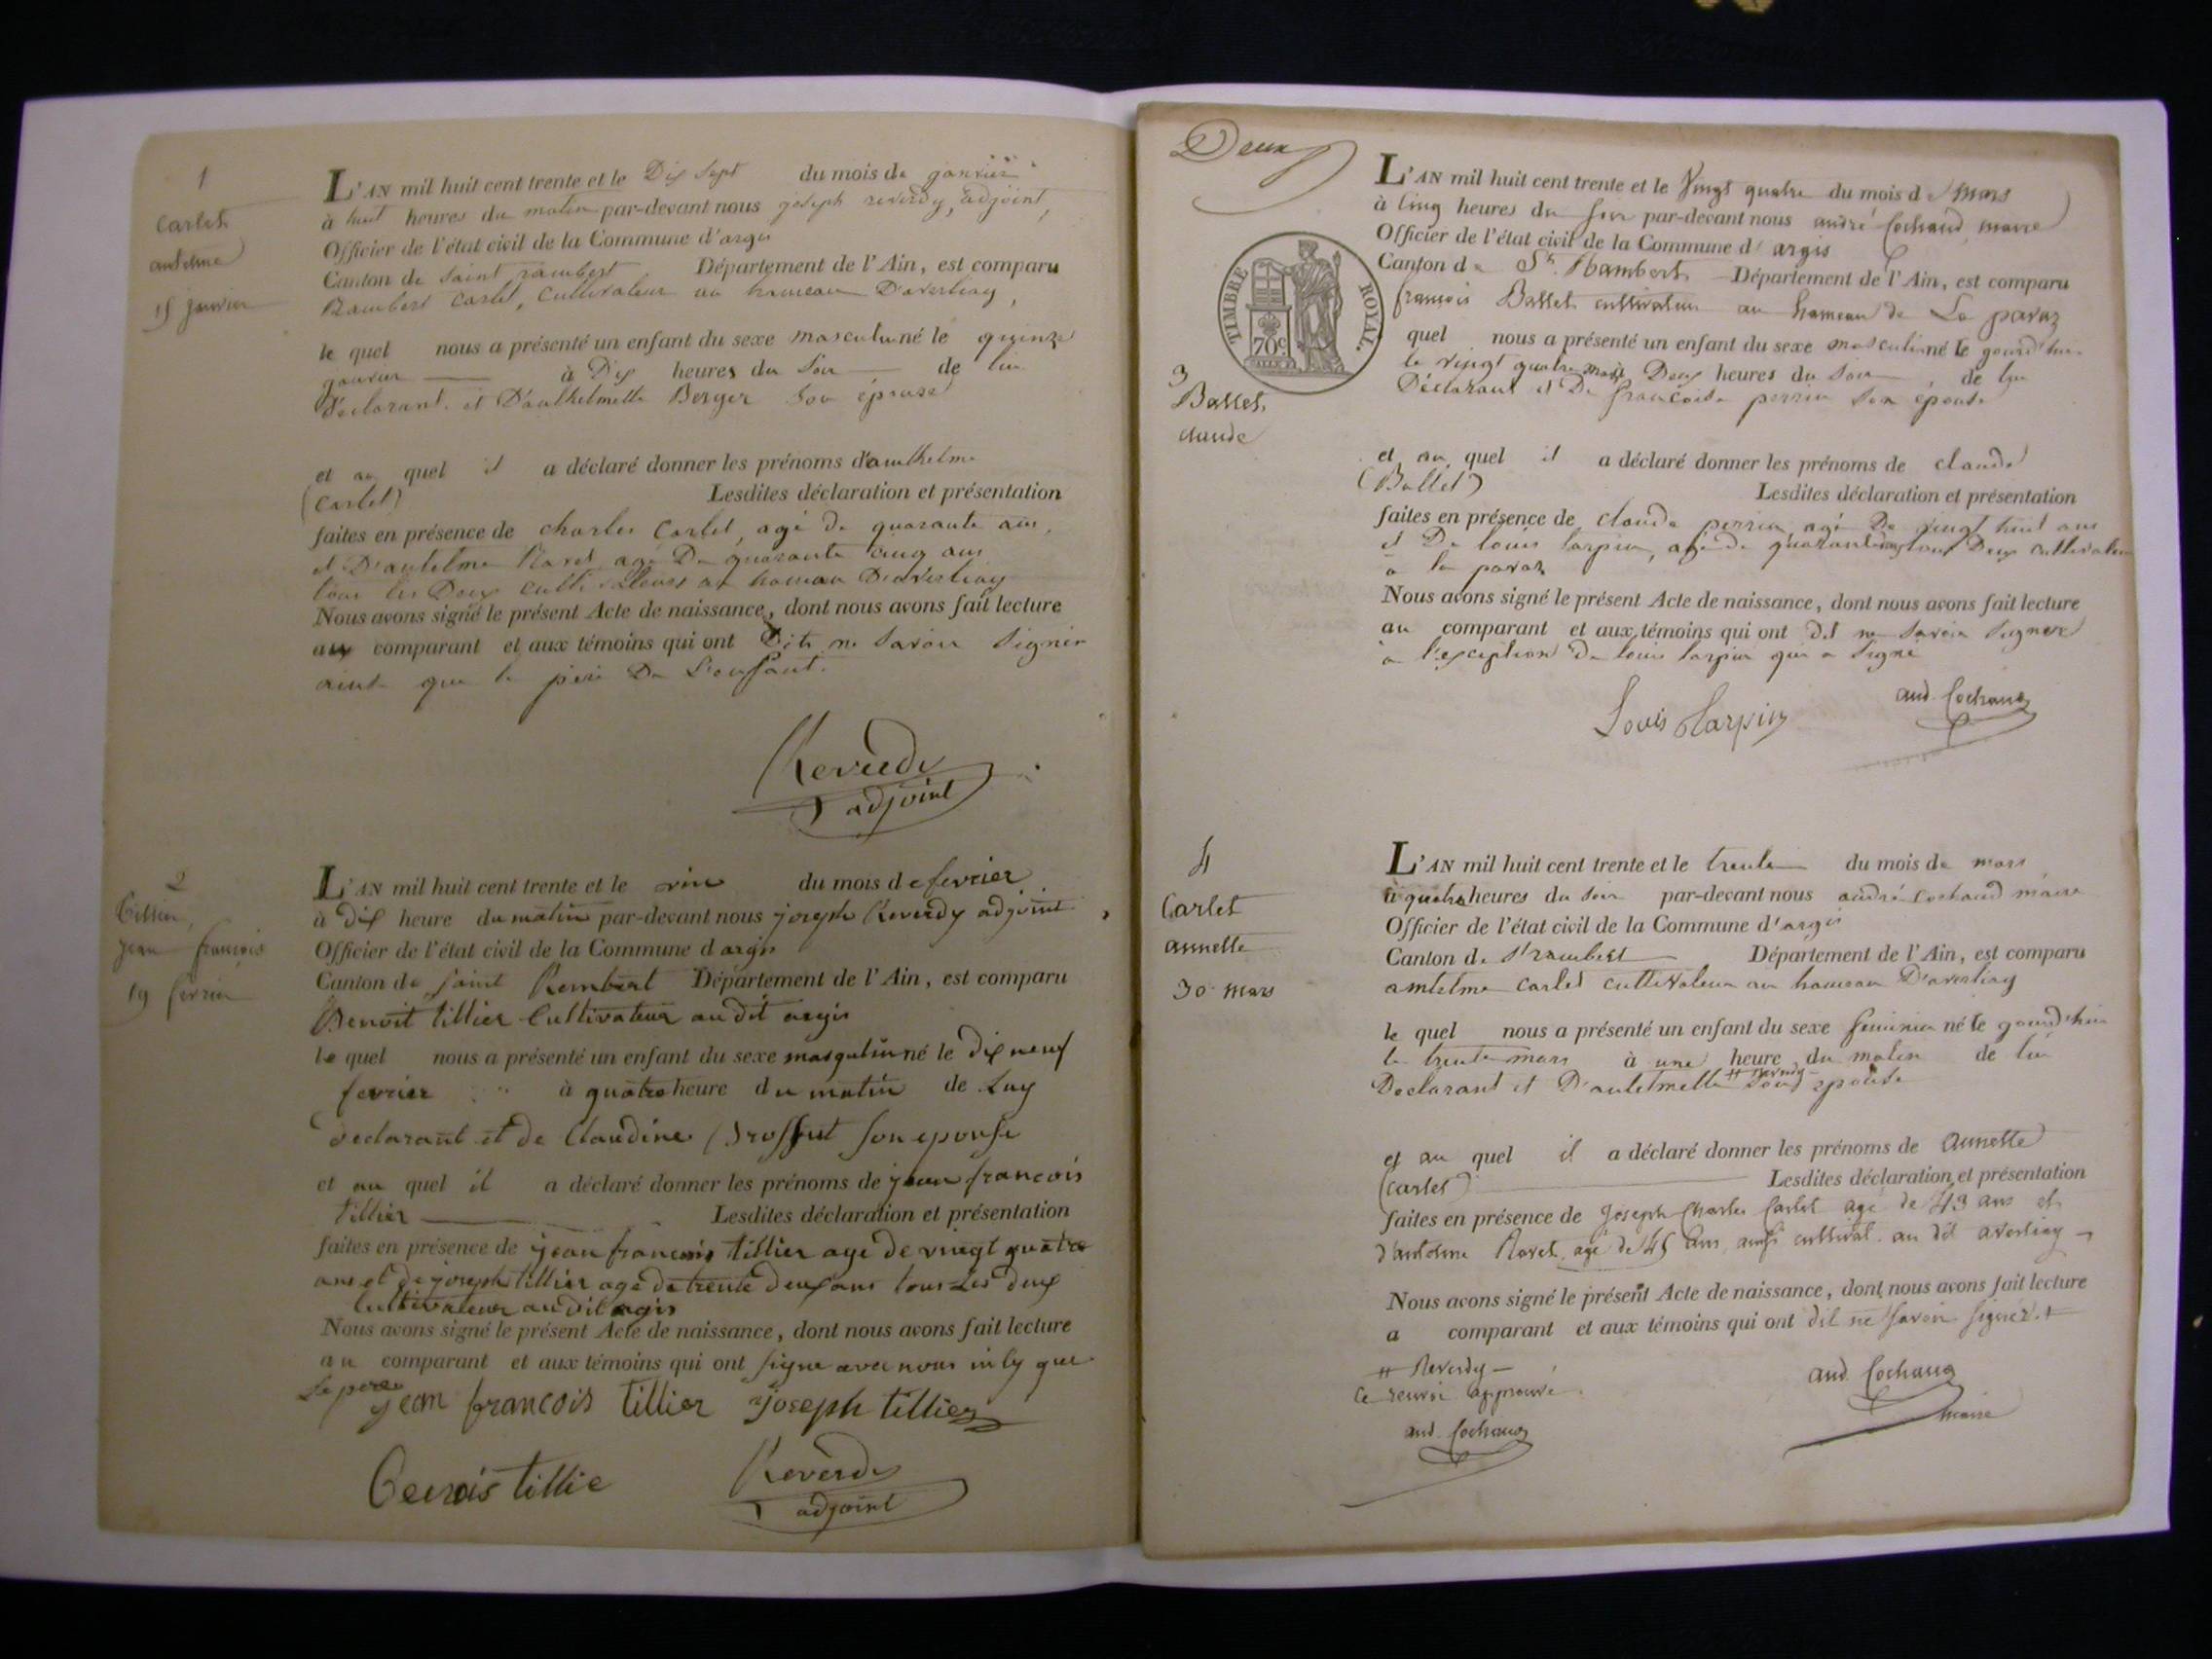 1
Carlet
antelme
15 janvier
L'AN mil huit cent trente et le Dix Sept du mois de janvier
à huit heures du matin par-devant nous joseph reverdy, adjoint,
Officier de l'état civil de la Commune d'argis
Canton de Saint rambert Département de l'Ain, est comparu
Rambert Carlet, Cultivateur au hameau D'averliay,
le quel nous a présenté un enfant du sexe masculin né le quinze
janvier à Dix heures du Soir de lui
Déclarant et D'anthelmette Berger Son épouse
et au quel il a déclaré donner les prénoms d'anthelme
(Carlet) Lesdites déclaration et présentation
faites en présence de charles Carlet, agé de quarante ans,
et D'antelme Ravet agé De quarante cinq ans
tous les Deux cultivateurs au hameau D'averliay
Nous avons signé le présent Acte de naissance, dont nous avons fait lecture
au comparant et aux témoins qui ont Dit ne Savoir Signer
ainsi que le père De L'enfant.
Reverdy
adjoint
2
Tillier,
jean françois
19 fevrier
L'AN mil huit cent trente et le du mois de fevrier
à dix heure du matin par-devant nous joseph Reverdy adjoint
Officier de l'état civil de la Commune d argis
Canton de saint Rembert Département de l'Ain, est comparu
Benoit tillier Cultivateur au dit argis
le quel nous a présenté un enfant du sexe masqulin né le dix neuf
fevrier à quatre heure du matin de Luy
declarant et de Claudine son epouse
et au quel il a déclaré donner les prénoms de jean francois
tillier Lesdites déclaration et présentation
faites en présence de jean francois tillier age de vingt quatre
ans et de joseph tillier age de trente deux ans tous Les deux
Cultivateur au dit argis
Nous avons signé le présent Acte de naissance, dont nous avons fait lecture
au comparant et aux témoins qui ont signe avec nous que
Le pere
jean francois tillier joseph tillier
tillie Reverdy
adjoint
Deux
TIMBRE ROYAL.
70c
3
Ballet,
claude
L'AN mil huit cent trente et le Vingt quatre du mois de Mars
à Cinq heures du soir par-devant nous andré Cochaud, maire
Officier de l'état civil de la Commune d'argis
Canton de St. Rambert Département de l'Ain, est comparu
françois Ballet cultivateur au hameau de La paraz
quel nous a présenté un enfant du sexe masculin né le jourd'hui
le vingt quatre mars à Deux heures du Soir, de lui
Déclarant et De françoise perrin Son épouse
et au quel il a déclaré donner les prénoms de claude
(Ballet) Lesdites déclaration et présentation
faites en présence de claude perrin agé De vingt huit ans
et De louis Carpin, agé de quarante tous Deux cultivateurs
à la paraz
Nous avons signé le présent Acte de naissance, dont nous avons fait lecture
au comparant et aux témoins qui ont dit ne savoir signer
à l'exception De louis Carpin qui a Signé
Louis Carpin and. Cochaud
4
Carlet
annette
30 mars
L'AN mil huit cent trente et le trente du mois de mars
à quatre heures du Soir par-devant nous andré Cochaud maire
Officier de l'état civil de la Commune d'argis
Canton de St rambert Département de l'Ain, est comparu
antelme Carlet cultivateur au hameau D'averliay
le quel nous a présenté un enfant du sexe feminin né le jourd'hui
le trente mars à une heure du matin de lui
Declarant et D'antelmette # Reverdy Son épouse
et au quel il a déclaré donner les prénoms de annette
(Carlet) Lesdites déclaration et présentation
faites en présence de Joseph Charles Carlet agé de 43 ans et
d'antelme Ravet agé de 45 ans, aussi cultivat. au dit averliay
Nous avons signé le présent Acte de naissance, dont nous avons fait lecture
a comparant et aux témoins qui ont dit ne savoir signer. +
# Reverdy —
Ce renvoi approuvé.
and. Cochaud
and. Cochaud
maire